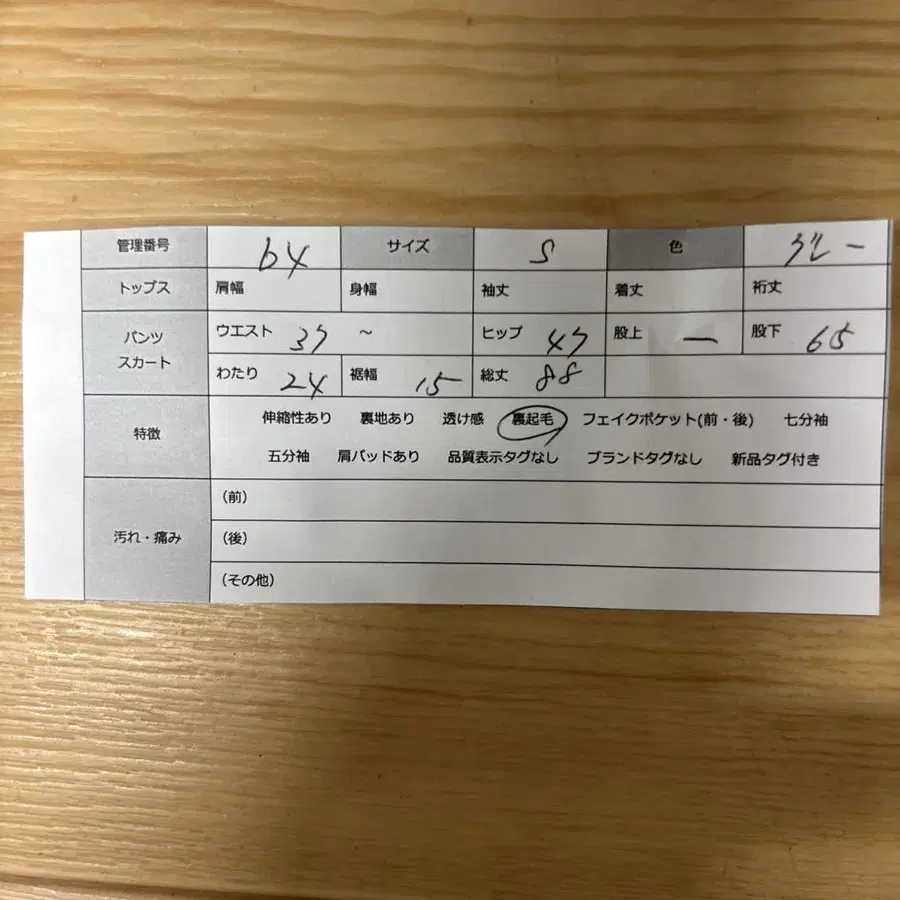 管理番号 64 サイズ S 色 グレー
トップス 肩幅 身幅 袖丈 着丈 裄丈
パンツ スカート ウエスト 37 ～ ヒップ 47 股上 ー 股下 65
わたり 24 裾幅 15 総丈 88
特徴 伸縮性あり 裏地あり 透け感 裏起毛 フェイクポケット(前・後) 七分袖
五分袖 肩パッドあり 品質表示タグなし ブランドタグなし 新品タグ付き
汚れ・痛み (前)
(後)
(その他)